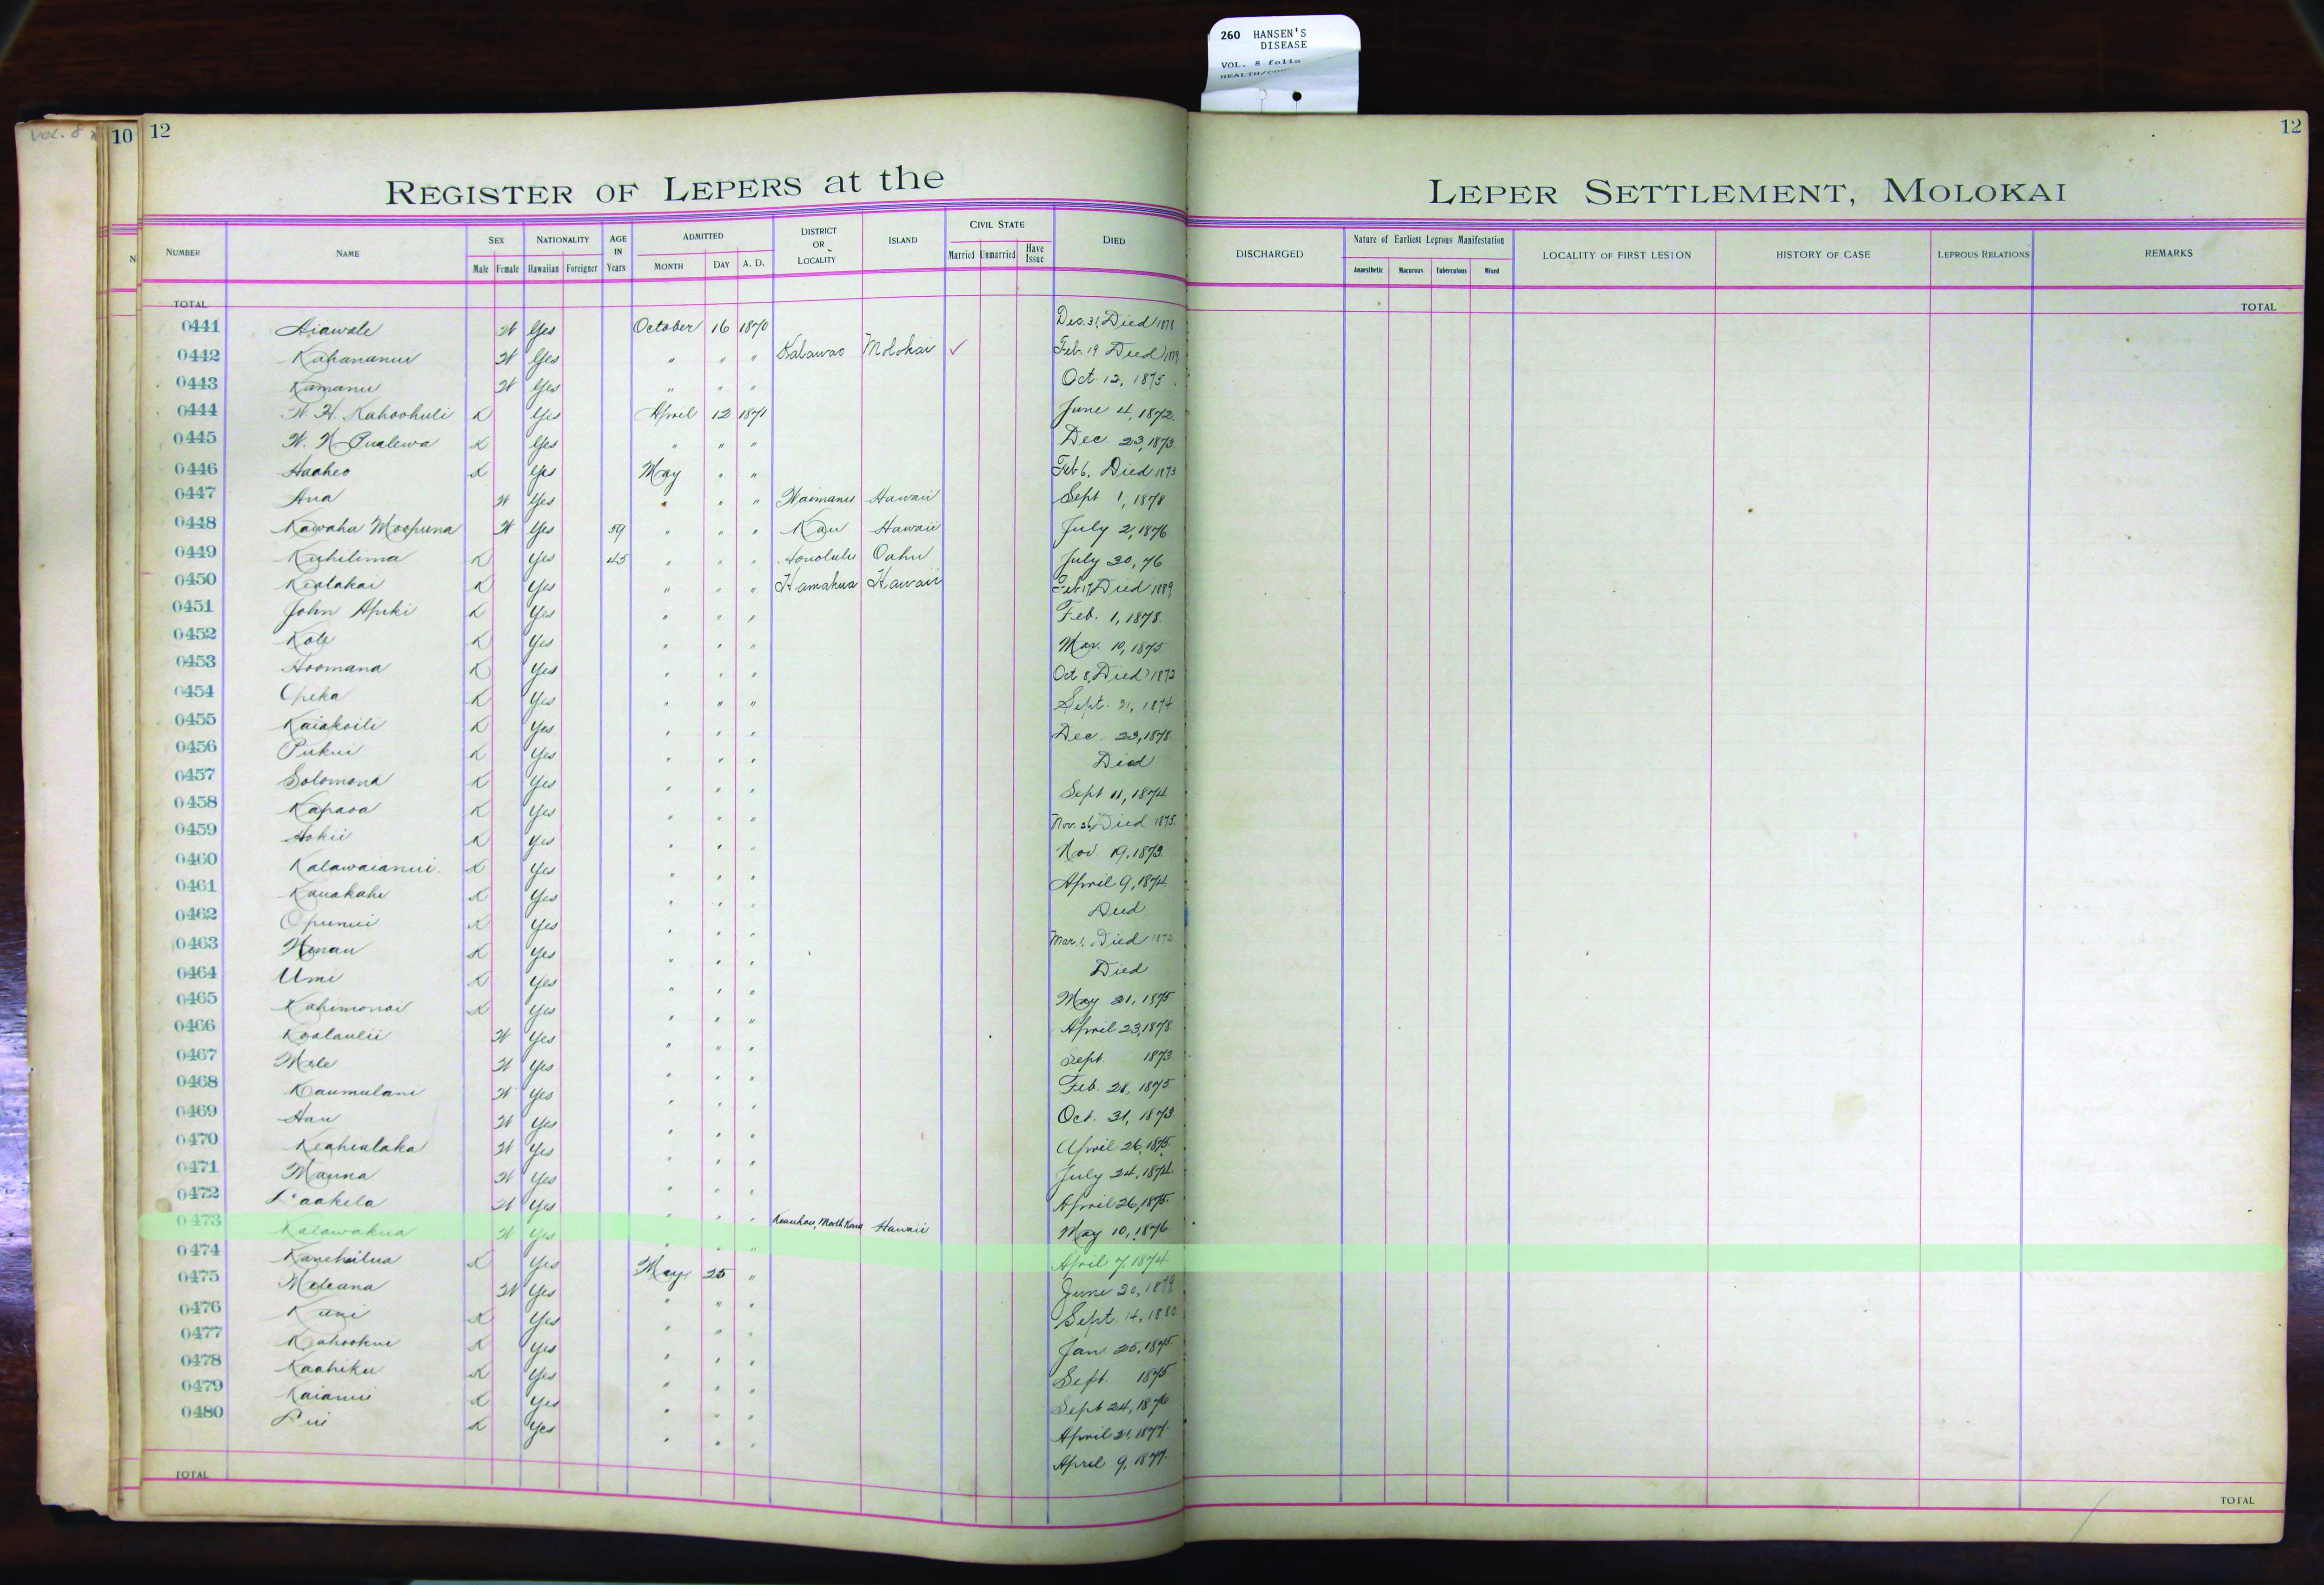 260 HANSEN'S
DISEASE
VOL. 8 folio
VOL. 8
10
12
12
REGISTER OF LEPERS at the LEPER SETTLEMENT, MOLOKAI
NUMBER NAME SEX Male Female NATIONALITY Hawaiian Foreigner AGE IN Years ADMITTED MONTH DAY A. D. DISTRICT OR LOCALITY ISLAND CIVIL STATE Married Unmarried Have Issue DIED DISCHARGED Nature of Earliest Leprous Manifestation Anaesthetic Macurous Tuberculous Mixed LOCALITY OF FIRST LESION HISTORY OF CASE LEPROUS RELATIONS REMARKS
TOTAL TOTAL
0441 Aiawale W Yes October 16 1870 Dec. 31, Died 1878
0442 Kahananui W Yes " " " Kalawao Molokai ✓ Feb. 19 Died 1879
0443 Kamanu W Yes " " " Oct. 12, 1875
0444 W. H. Kahoohuli K Yes April 12 1871 June 4, 1872
0445 W. N. Pualewa K Yes " " " Dec. 23, 1873
0446 Haaheo K Yes May " " Feb 6, Died 1873
0447 Ana W Yes " " " Waimanu Hawaii Sept 1, 1878
0448 Kawaha Moopuna W Yes 59 " " " Kau Hawaii July 2, 1876
0449 Kuhilima K Yes 45 " " " Honolulu Oahu July 30, 76
0450 Kealakai K Yes " " " Hamakua Hawaii Feb 17, Died 1889
0451 John Apiki K Yes " " " Feb. 1, 1878
0452 Kole K Yes " " " Mar. 10, 1875
0453 Hoomana K Yes " " " Oct 8, Died 1873
0454 Opeka K Yes " " " Sept. 21, 1874
0455 Kaiakoili K Yes " " " Dec. 23, 1878
0456 Pukui K Yes " " " Died
0457 Solomona K Yes " " " Sept 11, 1874
0458 Kapaoa K Yes " " " Nov. 26, Died 1875
0459 Hokii K Yes " " " Nov. 19, 1873
0460 Kalawaianui K Yes " " " April 9, 1874
0461 Kauakahi K Yes " " " Died
0462 Opunui K Yes " " " Mar. 1, Died 1872
0463 Hinau K Yes " " " Died
0464 Umi K Yes " " " May 21, 1875
0465 Kahimonoi K Yes " " " April 23, 1878
0466 Koolaulii W Yes " " " Sept 1873
0467 Mele W Yes " " " Feb. 28, 1875
0468 Kaumulani W Yes " " " Oct. 31, 1873
0469 Hau W Yes " " " April 26, 1875
0470 Keahialaka W Yes " " " July 24, 1874
0471 Mauna W Yes " " " April 26, 1875
0472 Laakela W Yes " " " Keauhou, North Kona Hawaii May 10, 1876
0473 Kalawakua W Yes " " " April 7, 1874
0474 Kanehailua K Yes May 25 " June 20, 1879
0475 Meleana W Yes " " " Sept. 14, 1880
0476 Kuni K Yes " " " Jan 25, 1875
0477 Kahookui K Yes " " " Sept. 1875
0478 Kaahiku K Yes " " " Sept 24, 1876
0479 Kaianui K Yes " " " April 21, 1877
0480 Lui K Yes " " " April 9, 1877
TOTAL TOTAL